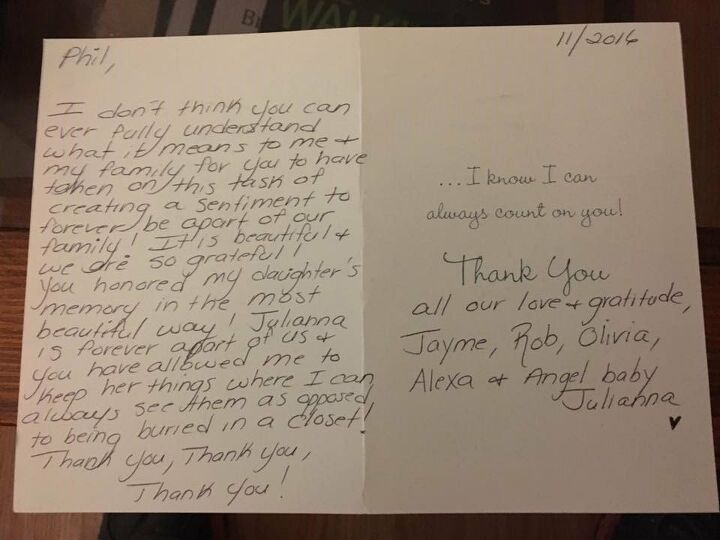 WALK
Phil,
I don't think you can
ever fully understand
what it means to me +
my family for you to have
taken on this task of
creating a sentiment to
forever be apart of our
family! It is beautiful +
we are so grateful!
You honored my daughter's
memory in the most
beautiful way! Julianna
is forever apart of us +
you have allowed me to
keep her things where I can
always see them as opposed
to being buried in a closet!
Thank you, Thank you,
Thank you!
11/2016
...I know I can
always count on you!
Thank You
all our love + gratitude,
Jayme, Rob, Olivia,
Alexa + Angel baby
Julianna